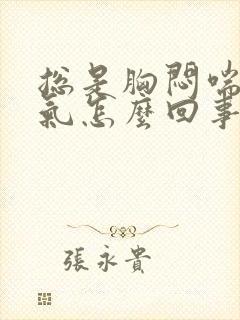 总是胸悶喘
氣怎麼回事
張永貴